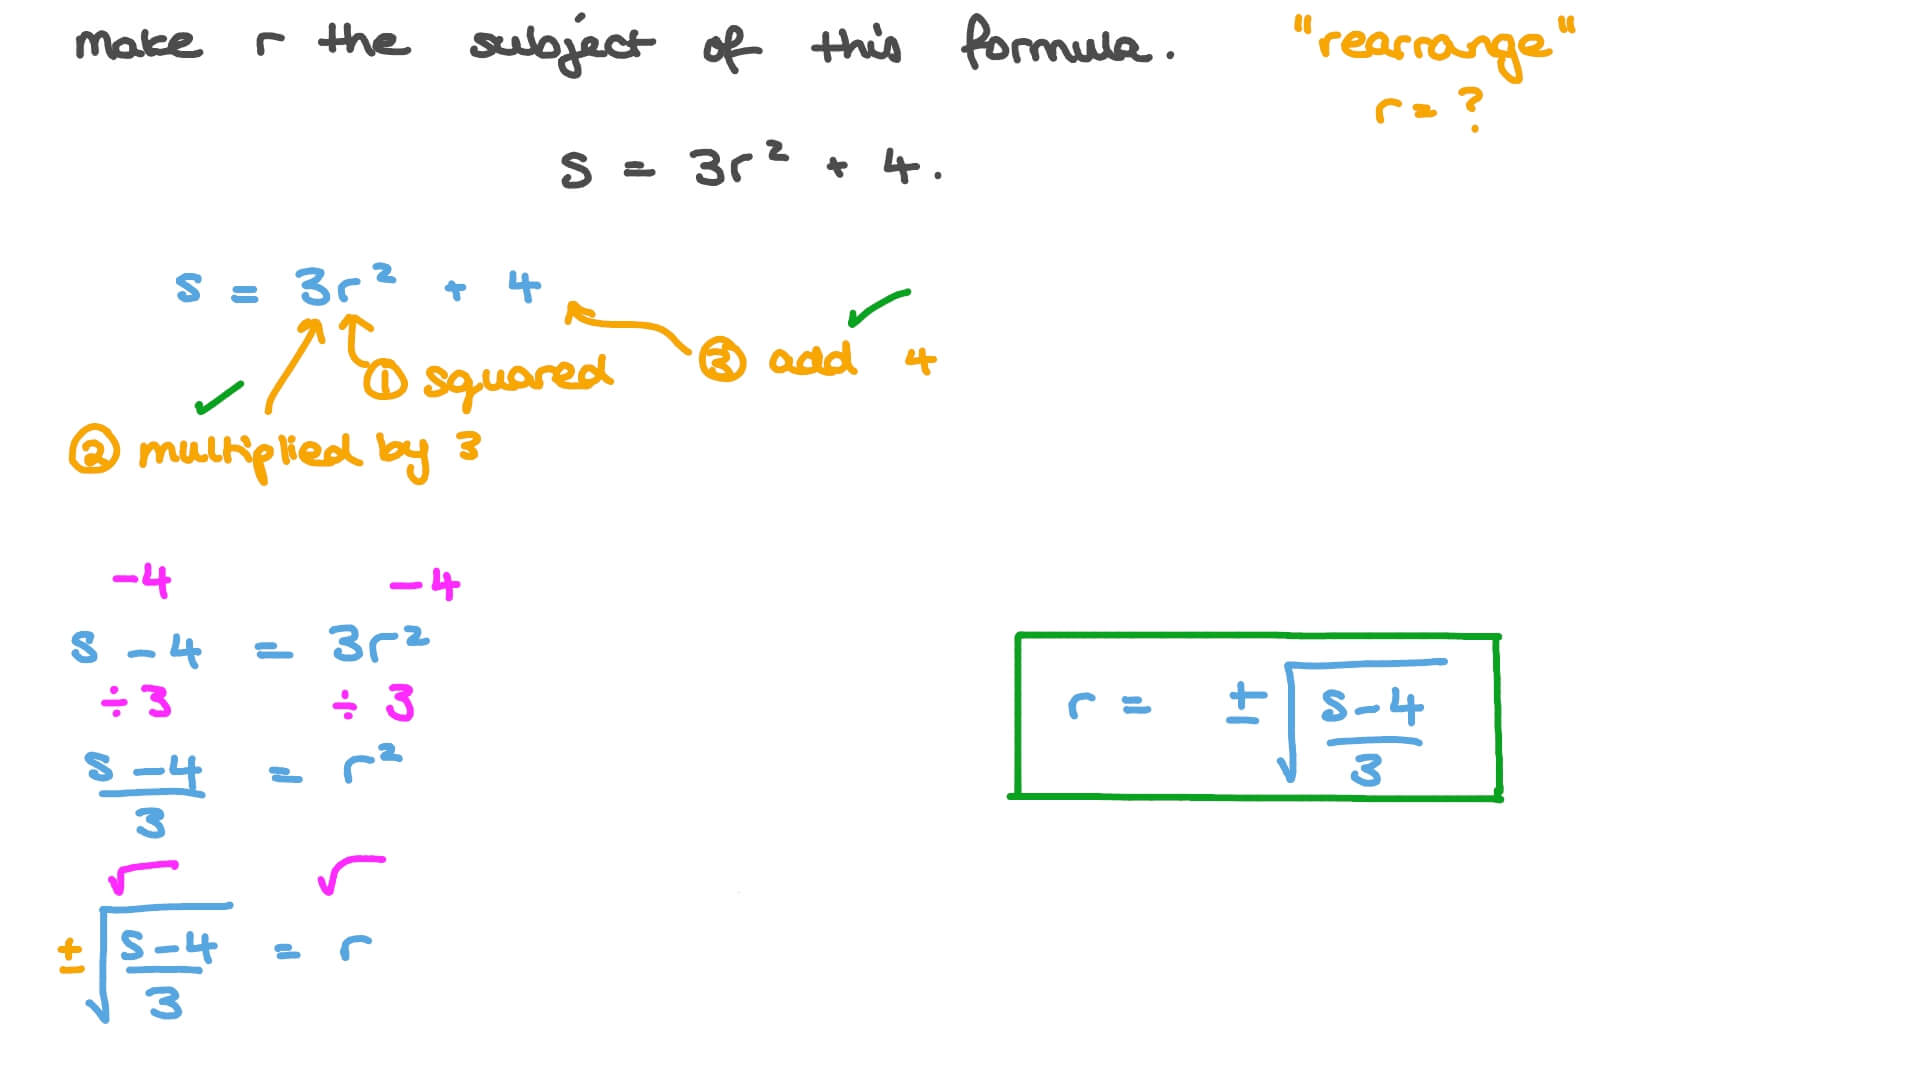 make r the subject of this formula. "rearrange"
r = ?
s = 3r² + 4.
s = 3r² + 4
① squared
③ add 4
② multiplied by 3
-4 -4
s - 4 = 3r²
÷3 ÷3
(s-4)/3 = r²
√ √
±√((s-4)/3) = r
r = ±√((s-4)/3)